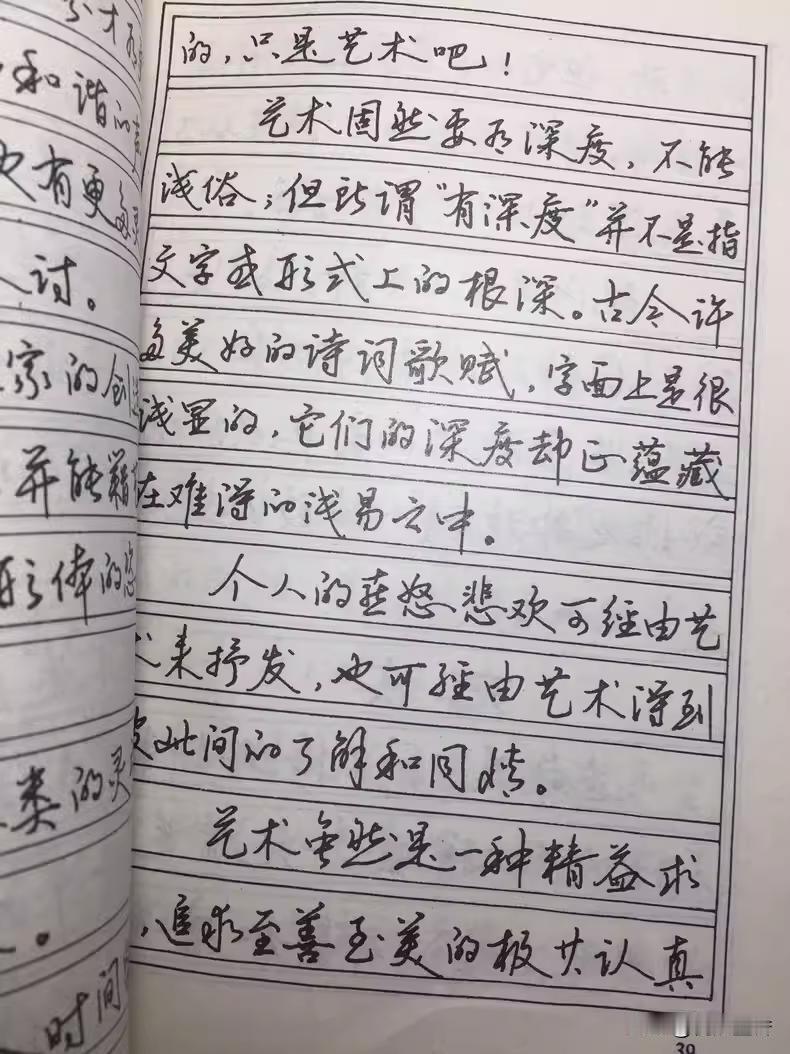 才
和谐的
也有更多
讨。
家的创造
并能精
形体的
类的灵
。
时间
的，只是艺术吧！
艺术固然要有深度，不能
浅俗；但所谓“有深度”并不是指
文字或形式上的根深。古今许
多美好的诗词歌赋，字面上是很
浅显的，它们的深度却正蕴藏
在难得的浅易之中。
个人的喜怒悲欢可经由艺
术来抒发，也可经由艺术得到
彼此间的了解和同情。
艺术虽然是一种精益求
，追求至善至美的极其认真
39